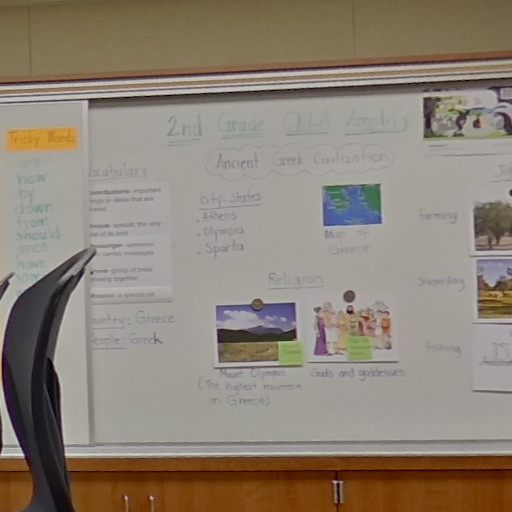 Tricky Words
how
by
down
from
should
once
have
2nd Grade CKLA Amplify
Ancient Greek Civilization
Vocabulary
contributions- important
things or ideas that are
unique- special; the only
one of its kind
messenger- someone
who carries messages
grove- group of trees
growing together
Mission- a special job
Country: Greece
People: Greek
City-States
. Athens
. Olympia
. Sparta
Map of
Greece
Religion
Mount Olympus
(The highest mountain
in Greece)
Gods and goddesses
farming
Shepherding
fishing